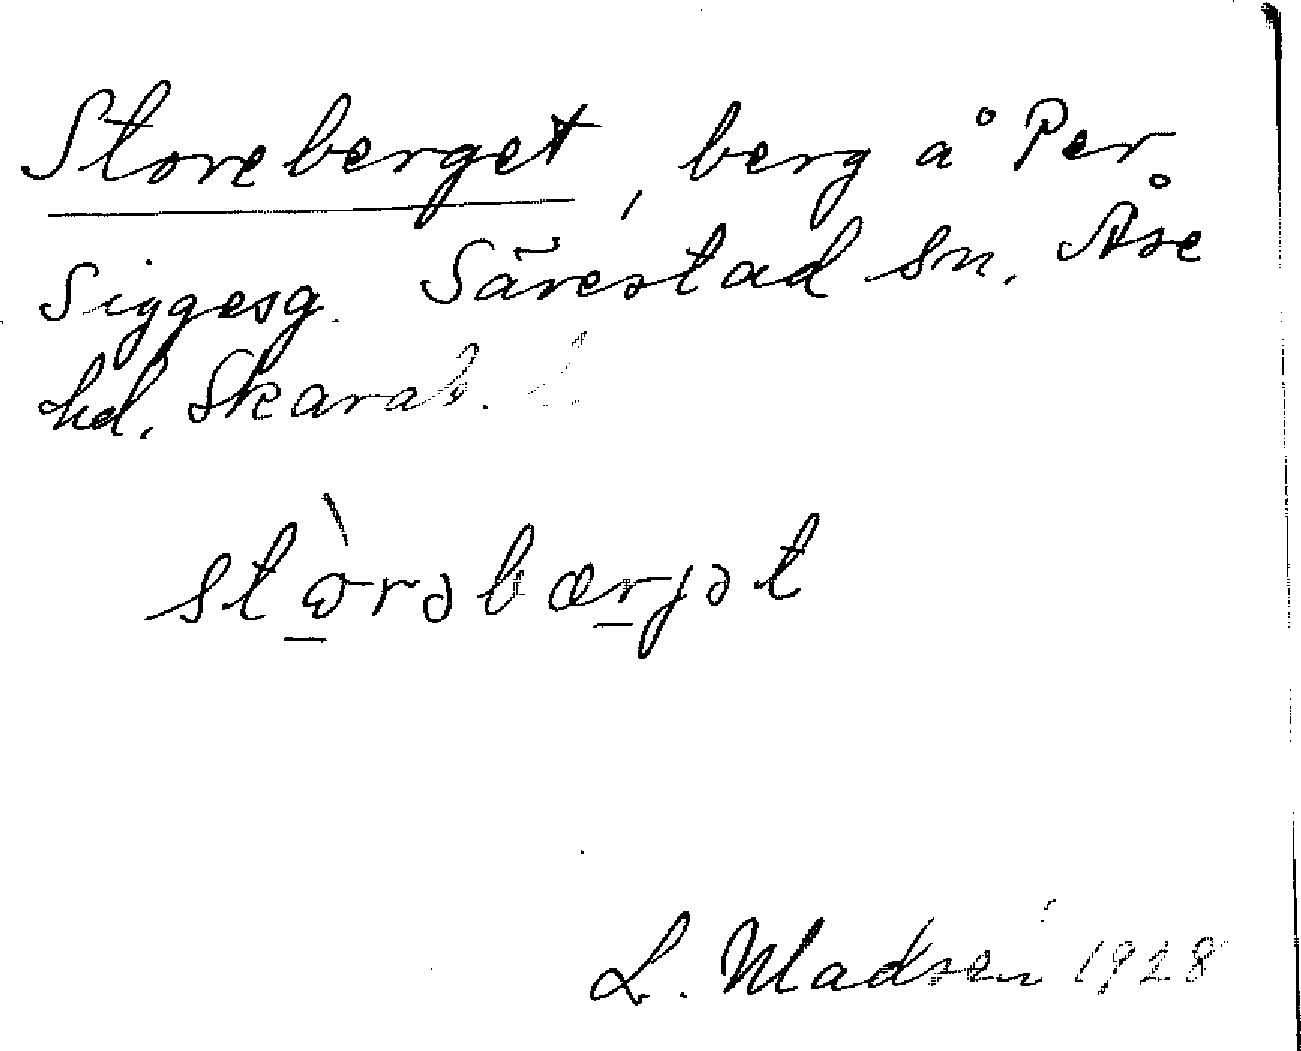 Storeberget, berg å Per
Siggesg. Särestad sn. Åse
hd. Skarab. l
stòrəbærjət
L. Madsen 1928